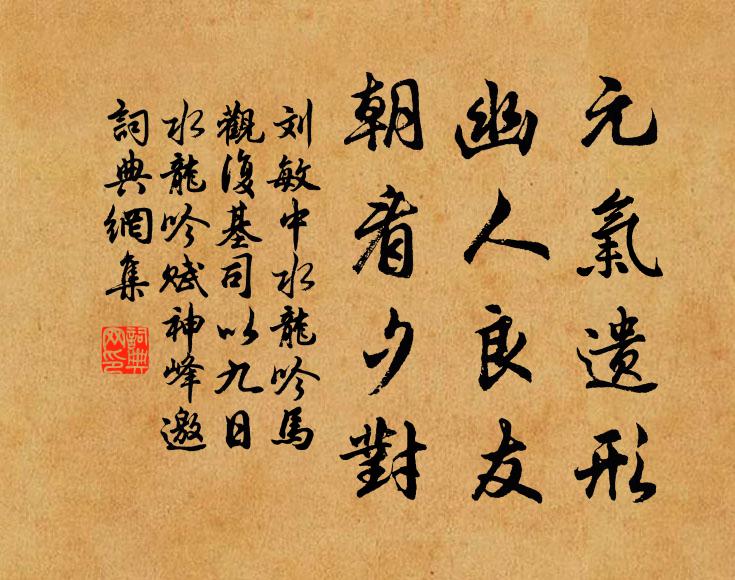 元氣遗形
幽人良友
朝看夕對
刘敏中水龍吟馬
觀復基司以九日
水龍吟赋神峰邀
詞典網集
詞典網印